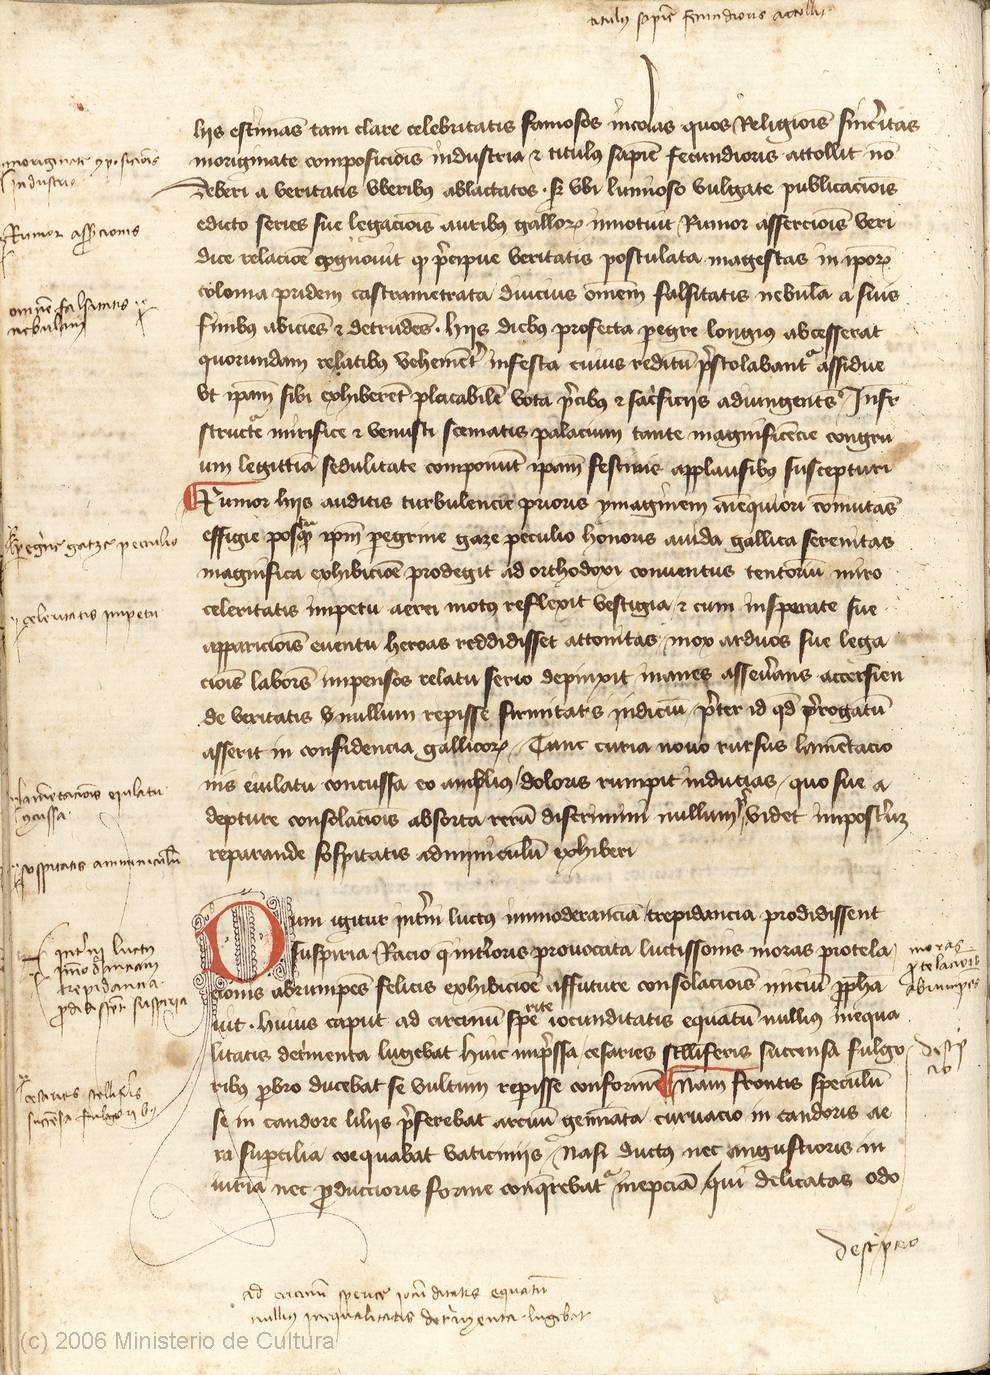 titulus sapiē fecundioris attollit
hiis estimās tam clare celebritatis famosos incolas quos Religiois̄ sinc̄ritas
moriginate composiciois̄ industria ⁊ titulus sapiē fecundioris attollit nō
deberi a veritatis vberibꝰ ablactatos · sꝫ vbi luminoso vulgate publicaciois̄
edicto series sue legaciois̄ auribꝰ galloꝝ innotuit Rumor asserciois̄ veri
dice relacioē cognouit ꝙ p̄cipue veritatis postulata magestas in ip̄oꝝ
colonia pridem castrametrata diucius om̄em falsitatis nebula a suis
finibꝰ abiciēs ⁊ detrudēs · hiis dictꝰ profecta pegre longiꝰ abcesserat
quorundam relatibꝰ vehemēt infesta cuius reditū p̄stolabant assidue
vt ip̄am sibi exhiberēt placabilē vota p̄cibꝰ ⁊ sac̄ficiis adiungentes Infr
structe mirifice ⁊ venusti scematis palacium tante magnificēcie congru
um legittīa sedulitate componūt ip̄am festiuis applausibꝰ suscepturi
Rumor hiis auditis turbulencie prioris ymaginem meq̄uiori com̄utās
effigie posq̄ ip̄m pegrine gaze peculio honoris auida gallica serenitas
magnifica exhibicioē prodegit ad orthodoxi conuentus tentoriū miro
celeritatis impetu aerei motꝰ reflexit vestigia ⁊ cum insperate sue
appariciois̄ euentu heroas reddidisset attonitas mox arduos sue lega
ciois̄ laborēs impensos relatu serio depinxit inanes asseu̅ans accersien
de veritatis vnullum repisse firmitatis indiciū p̄ter id qd̄ p̄rogatū
asserit in confidencia gallicoꝝ Tunc curia nouo rursus lamētacio
nis eiulatu concussa eo amplius doloris rumpit inducias quo sue a
depture consolaciois̄ absorta rerū discrimini nullum videt impost̄uꝫ
reparande sospitatis adminiculū exhiberi
Cum igitur int̄im luctus immoderancia trepidancia prodidissent
suspiria Racio q̄ int̄ioris prouocata luctissonis moras protela
cionis abrumpēs felicis exhibicioē affuture consolaciois̄ iniciū ꝓpha
uit · huius caput ad circinū spe rite iocunditatis equatū nullius inequa
litatis det̄menta lugebat huic imp̄ssa cesaries stelliferis succensa fulgo
ribꝰ ꝓbro ducebat se vultum repisse conformē Nam frontis speculū
se in candore liliis p̄ferebat arcuū geminata curuacio in candoris ae
ra supcilia coequabat vaticiniis Nasi ductus nec angustioris in
iuria nec ꝓductioris forme conq̄rebat inepciā qui delicatas odo
moriginate ꝯposiciois̄
industria
Rumor asserciois̄
om̄em falsitatis
nebulam
pegrine gaze peculio
celeritatis impetu
lamētaciois̄ eiulatu
ꝯcussa
sospitatis amminiculū
int̄im luctꝰ
īmoderanciam
trepidancia
ꝓdidissēt suspiria
cesaries stelliferis
succēsa fulgoribꝰ
moras
ꝓtelaciois̄
abrumpēs
descrip
cio
descripcio
ad circinū sperice iocūditatis equatū
nullius inequalitatis det̄menta lugebat
(c) 2006 Ministerio de Cultura